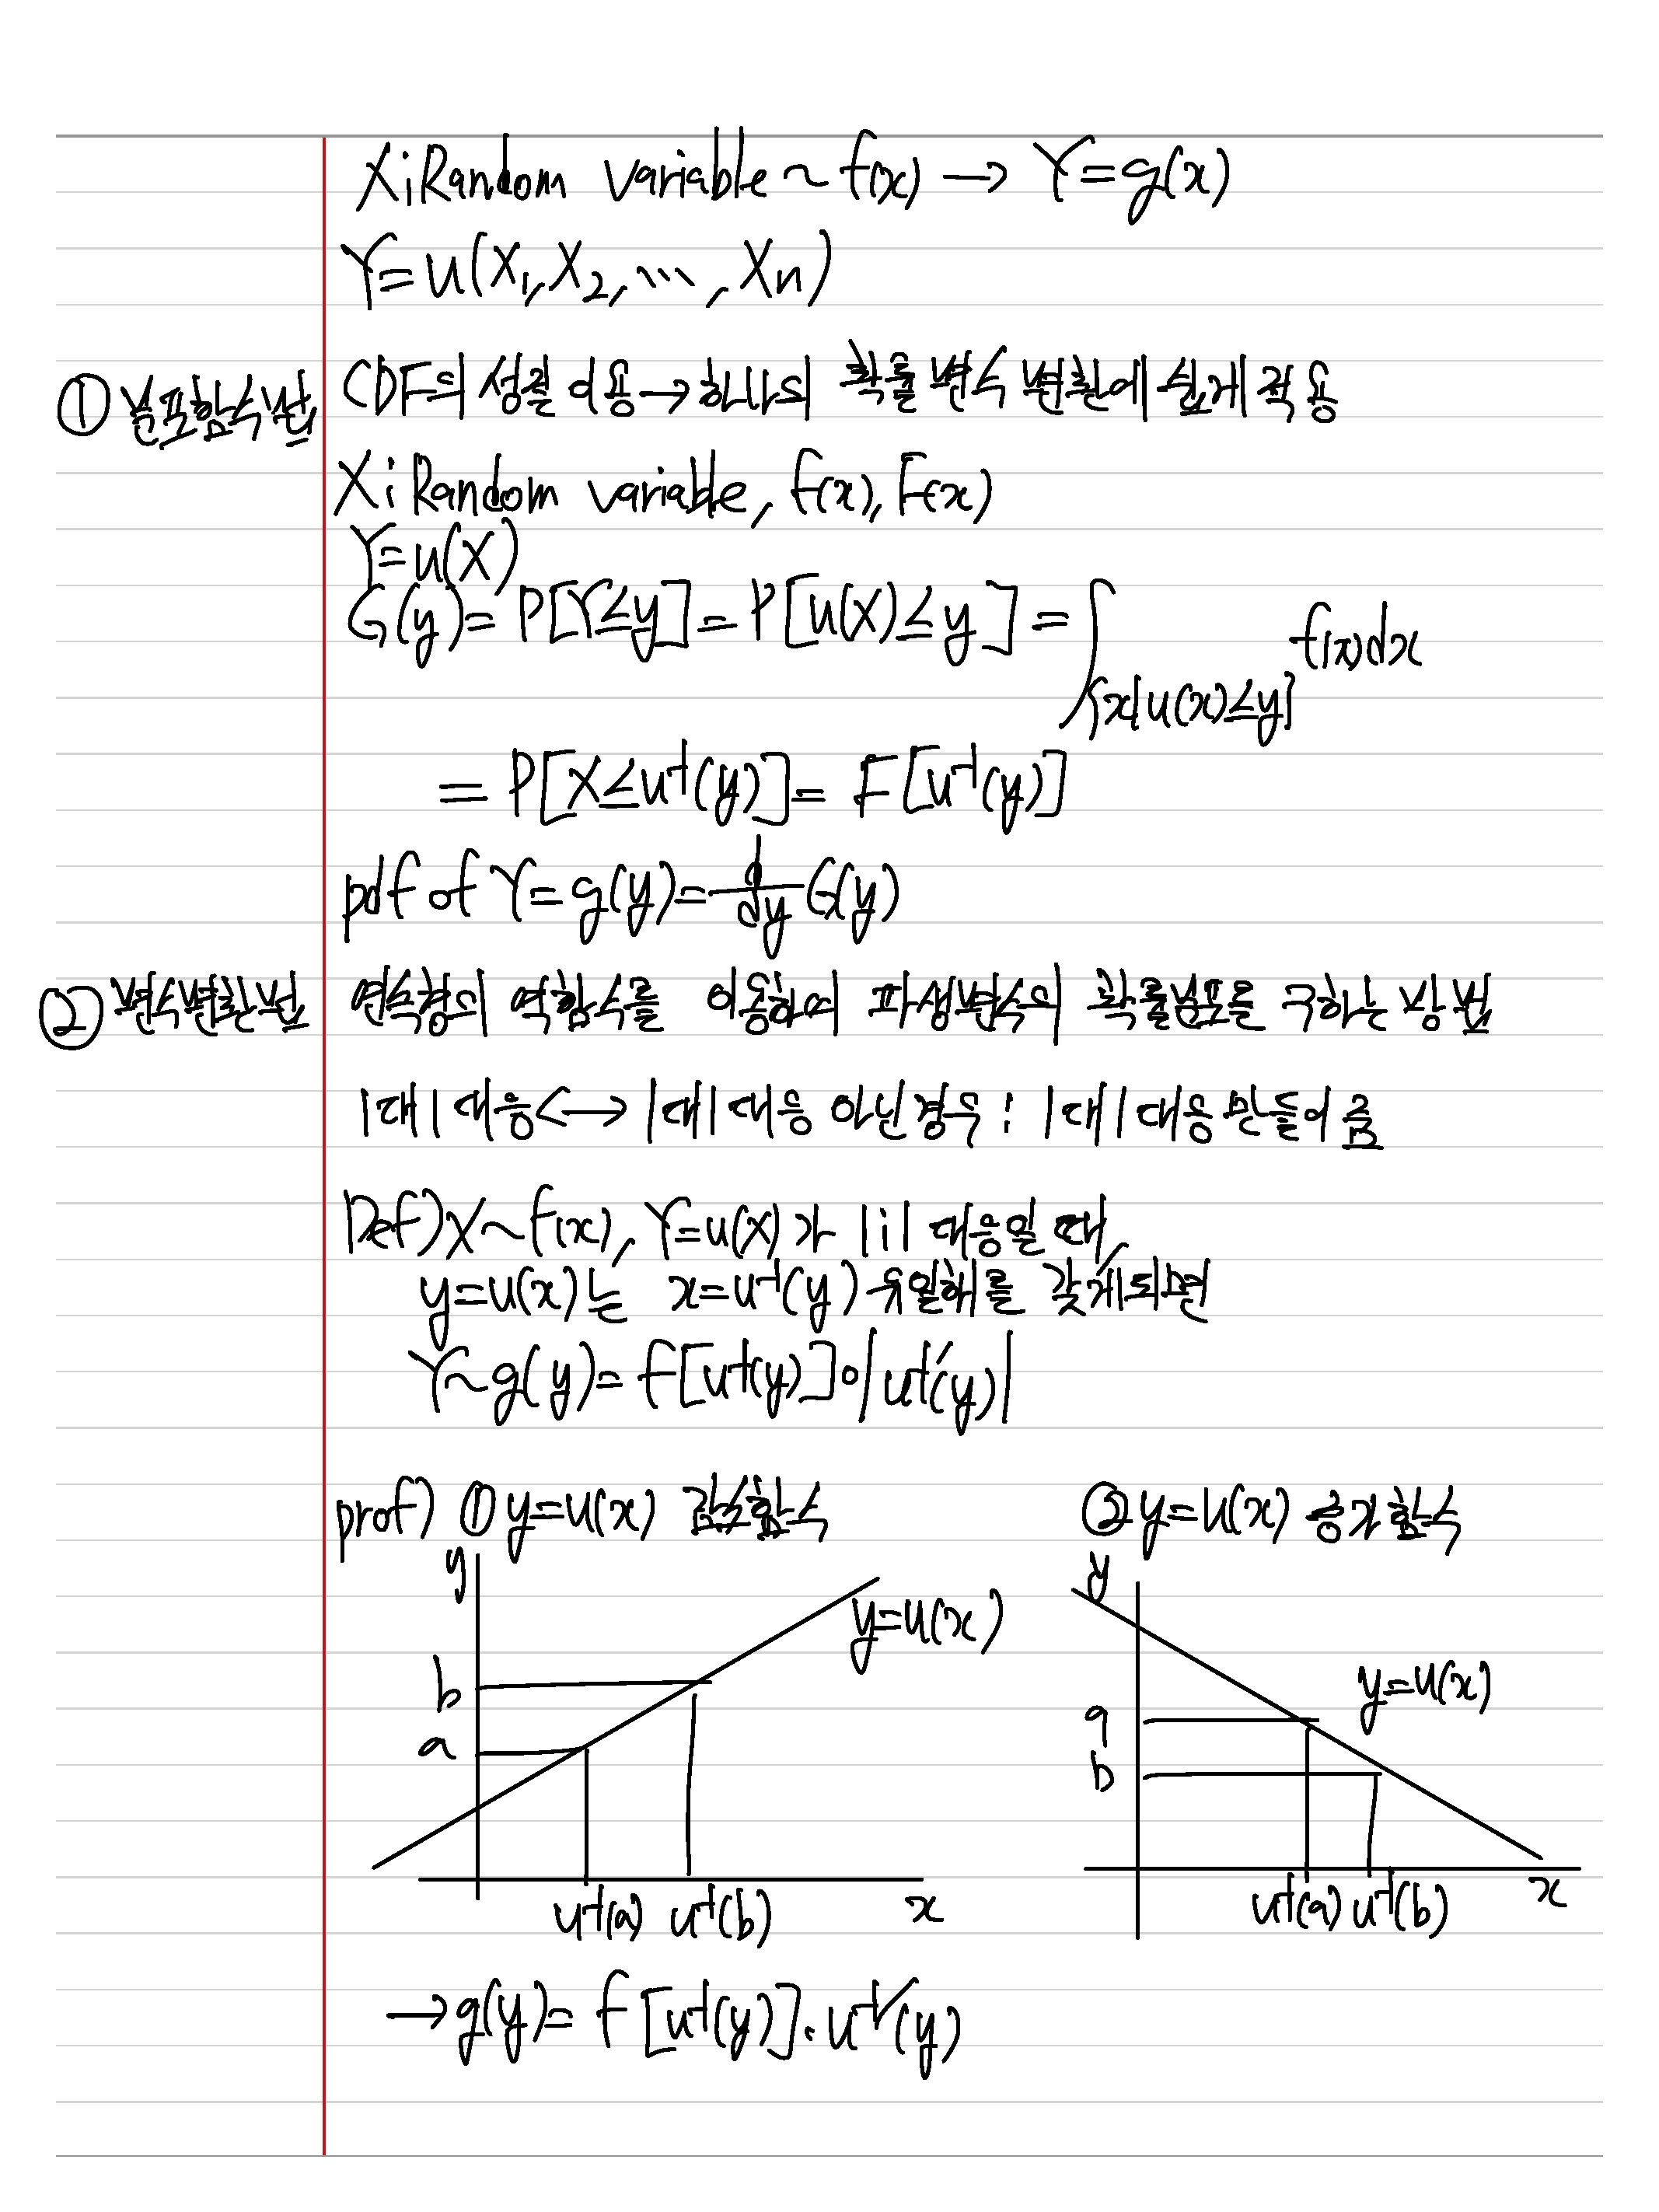 X; Random variable ~ f(x) → Y=g(x)
Y=u(X₁, X₂, ⋯, Xn)
① 분포함수법
CDF의 성질 이용→하나의 확률 변수 변환에 쉽게 적용
X; Random variable, f(x), F(x)
Y=u(X)
G(y)= P[Y≤y]= P[u(X)≤y] = ∫{x|u(x)≤y} f(x)dx
= P[X≤u⁻¹(y)]= F[u⁻¹(y)]
pdf of Y=g(y)=d/dy G(y)
② 변수변환법
연속형의 역함수를 이용하여 파생변수의 확률분포를 구하는 방법
1대1 대응<→1대1대응 아닌경우: 1대1대응 만들어줌
Def) X~f(x), Y=u(X)가 1:1 대응일 때,
y=u(x)는 x=u⁻¹(y) 유일해를 갖게되면
Y~g(y)= f[u⁻¹(y)]∘|u⁻¹′(y)|
prof) ① y=u(x) 감소함수
② y=u(x) 증가함수
y
y=u(x)
b
a
u⁻¹(a) u⁻¹(b) x
y
y=u(x)
a
b
u⁻¹(a) u⁻¹(b) x
→g(y)= f[u⁻¹(y)]·u⁻¹′(y)